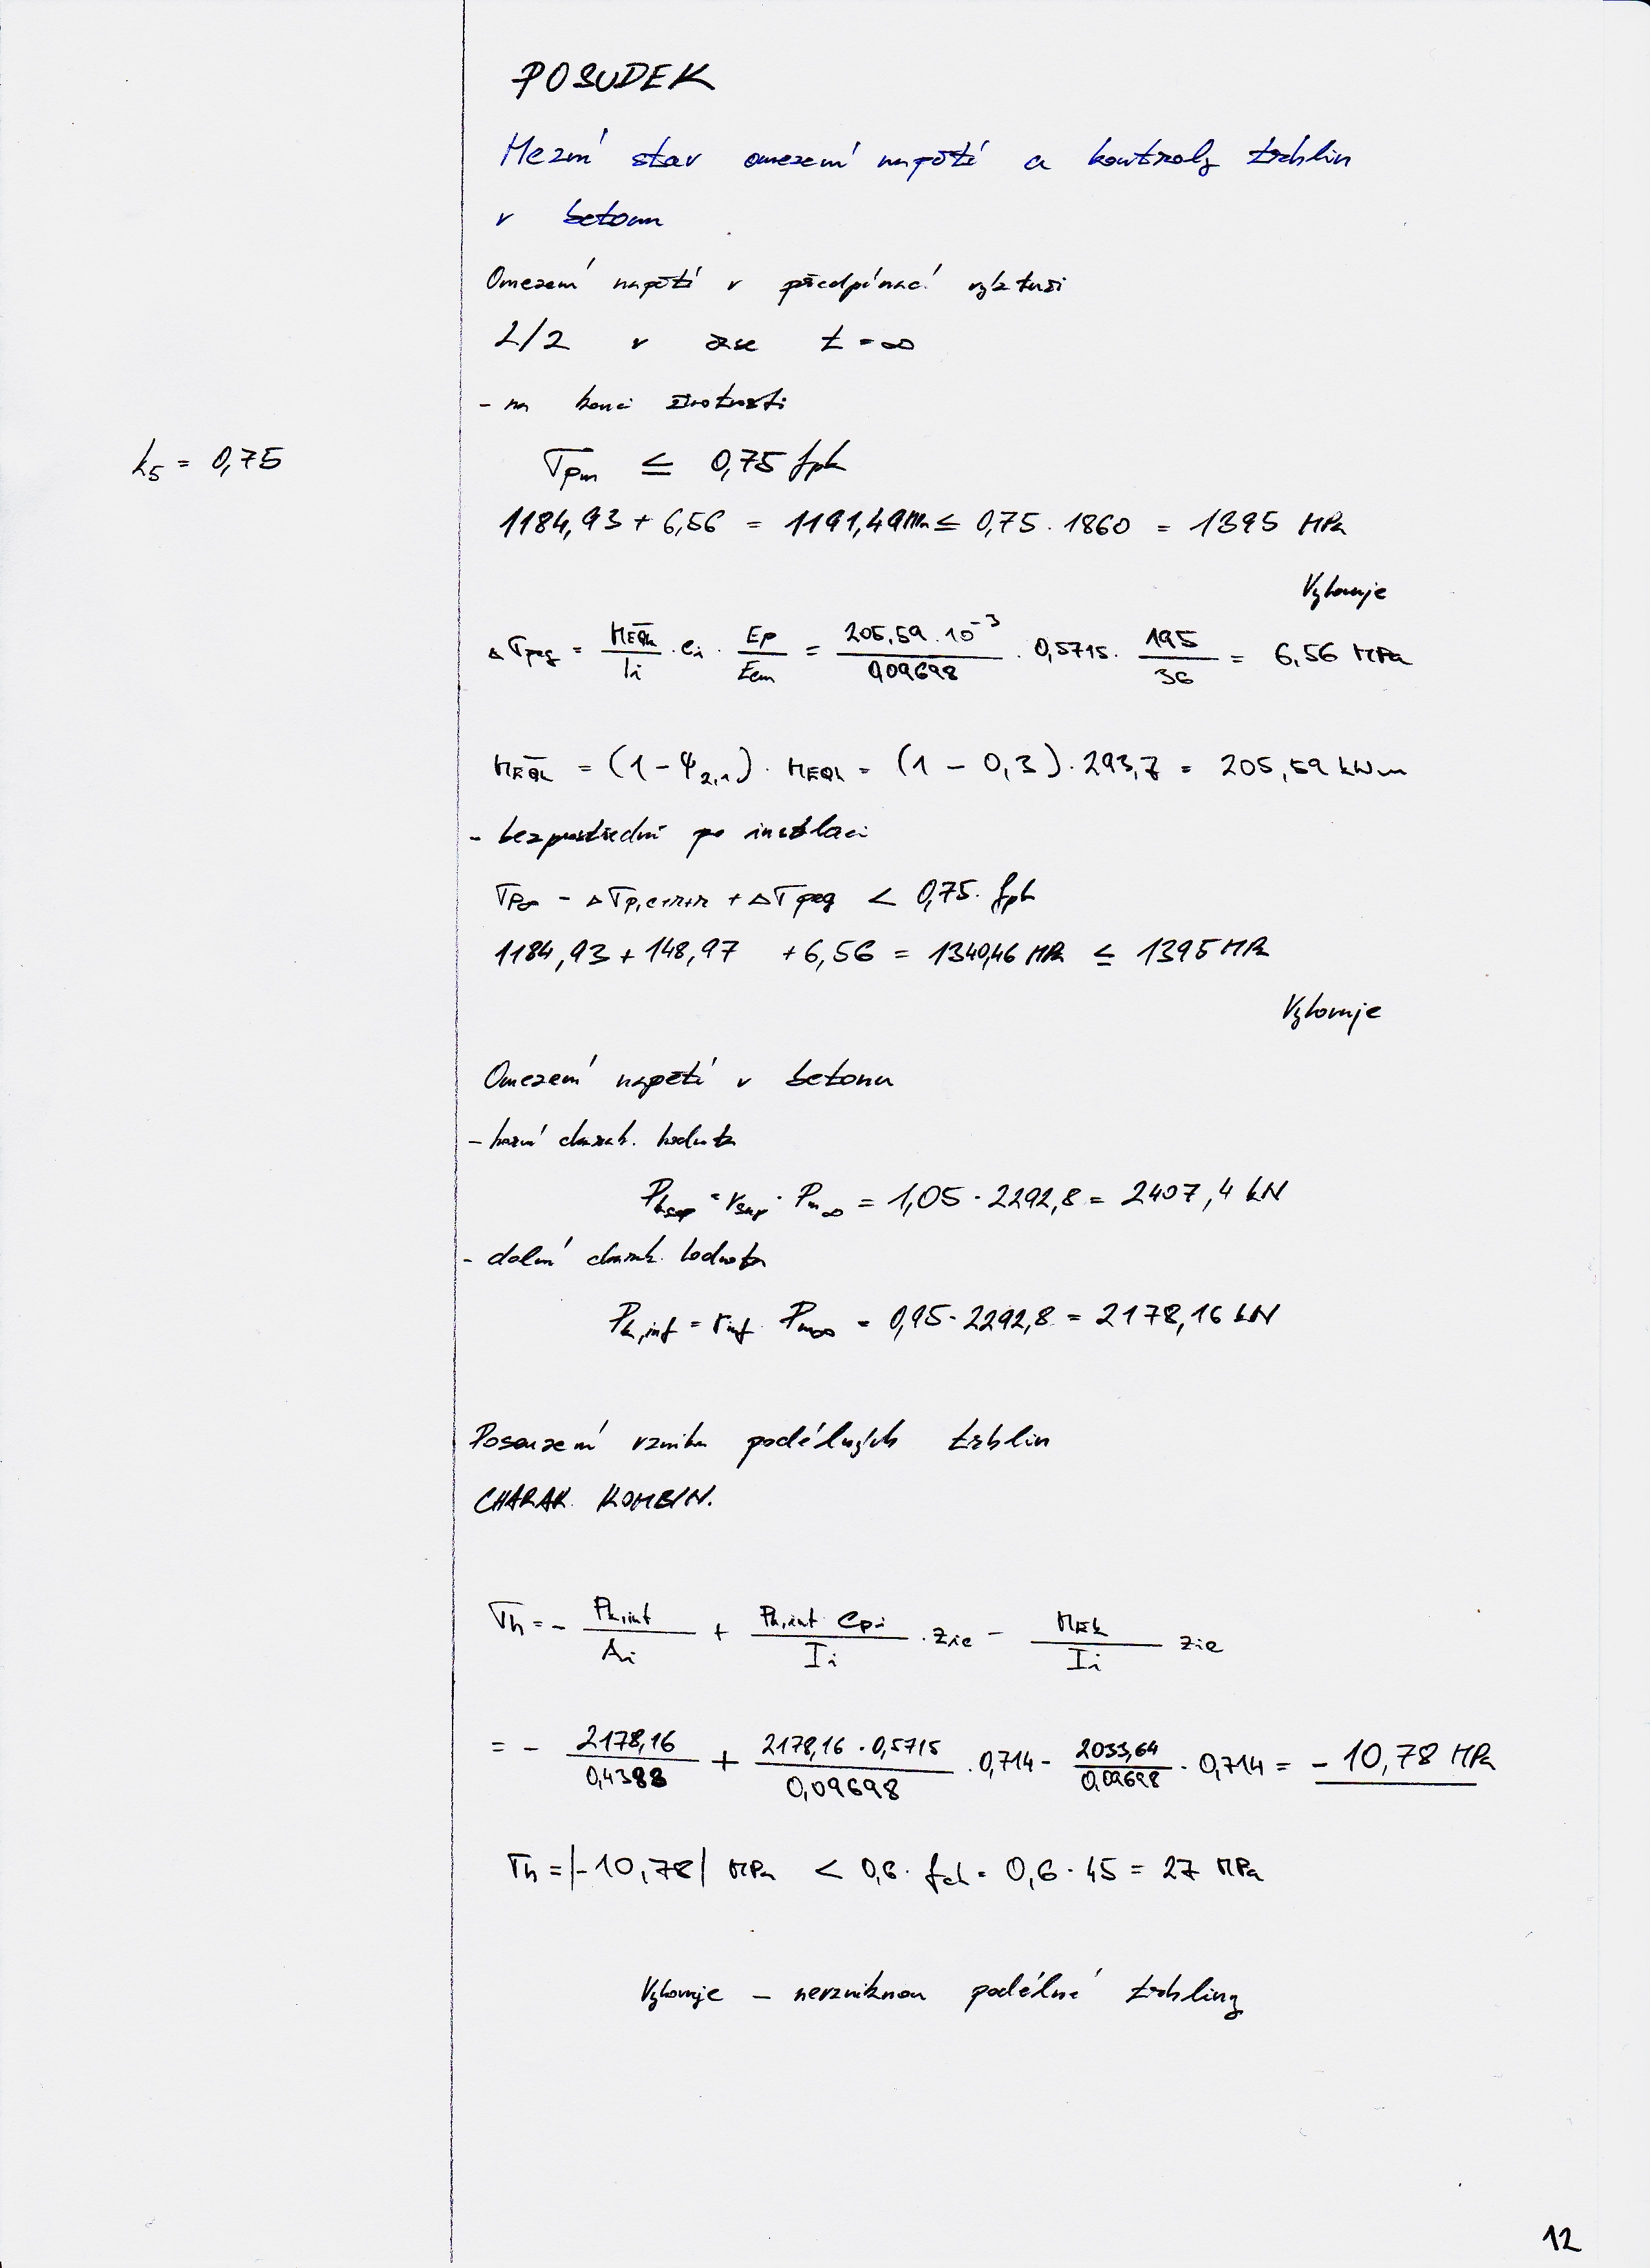 POSUDEK
Mezní stav omezení napětí a kontroly trhlin
v betonu
Omezení napětí v předpínací výztuži
L/2 v čase t = ∞
- na konci životnosti
k5 = 0,75
σpm ≤ 0,75 fpk
1184,93 + 6,56 = 1191,49 MPa ≤ 0,75 · 1860 = 1395 MPa
Vyhovuje
Δσpeg = MEQk/Ii · ei · Ep/Ecm = 205,59 · 10⁻³/0,09698 · 0,5715 · 195/36 = 6,56 MPa
MEQk = (1 - ψ2,1) · MEQk = (1 - 0,3) · 293,7 = 205,59 kNm
- bezprostředně po instalaci
σp∞ - Δσp,c+s+r + Δσpeg < 0,75 · fpk
1184,93 + 148,97 + 6,56 = 1340,46 MPa ≤ 1395 MPa
Vyhovuje
Omezení napětí v betonu
- horní charak. hodnota
Pksup = rsup · Pm∞ = 1,05 · 2292,8 = 2407,4 kN
- dolní charak. hodnota
Pk,inf = rinf · Pm∞ = 0,95 · 2292,8 = 2178,16 kN
Posouzení vzniku podélných trhlin
CHARAK. KOMBIN.
σh = - Pk,inf/Ai + Pk,inf epi/Ii · zic - MEk/Ii zic
= - 2178,16/0,4388 + 2178,16 · 0,5715/0,09698 · 0,714 - 2033,64/0,09698 · 0,714 = - 10,78 MPa
σh = |-10,78| MPa < 0,6 · fck = 0,6 · 45 = 27 MPa
Vyhovuje - nevzniknou podélné trhliny
12